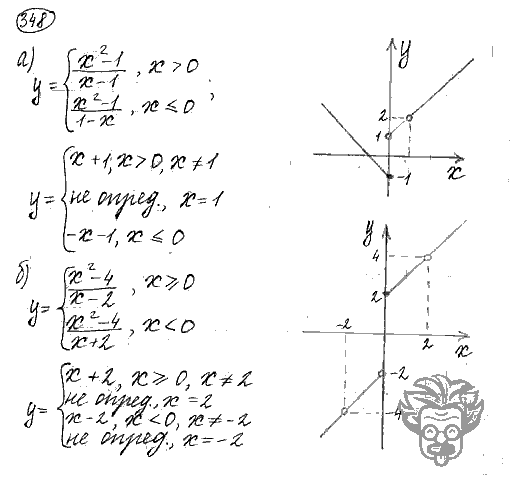 348
а) y = { x²-1 / x-1 , x > 0
x²-1 / 1-x , x ≤ 0 ;
y = { x+1, x>0, x≠1
не опред., x=1
-x-1, x ≤ 0
y
2
1
-1
x
б) y = { x²-4 / x-2 , x ⩾ 0
x²-4 / x+2 , x < 0
y = { x+2, x ⩾ 0, x ≠ 2
не опред., x = 2
x-2, x < 0, x ≠ -2
не опред., x = -2
y
4
2
-2
2
x
-2
-4